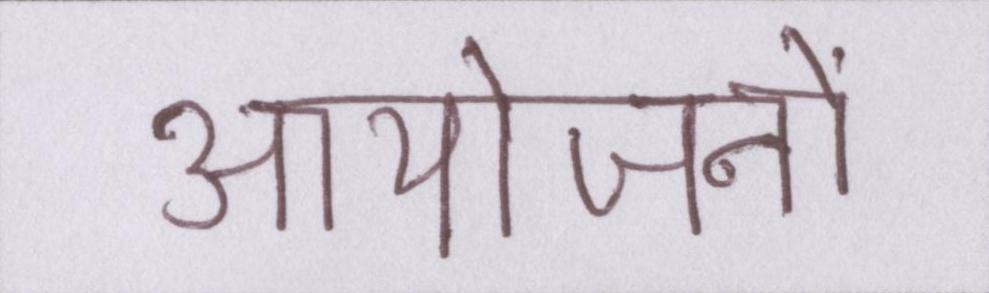 आयोजनों